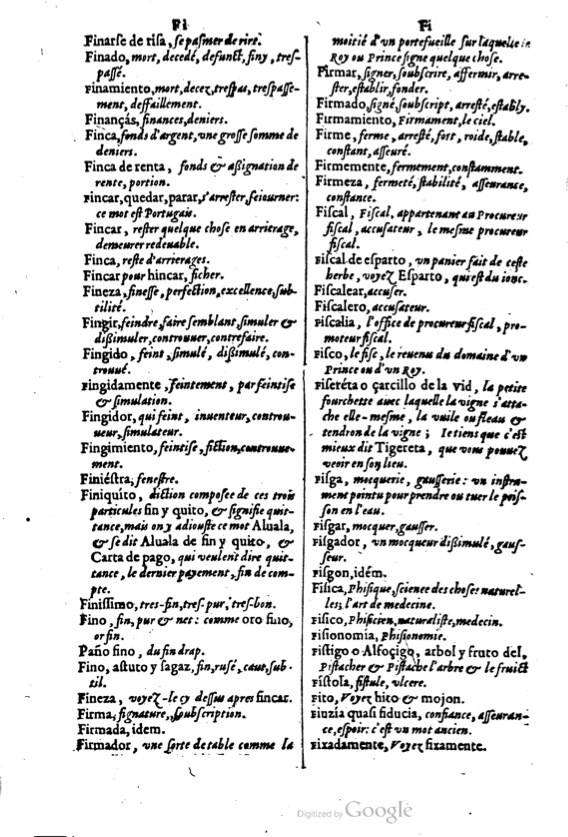 Fi
Finarse de risa, se pasmer de rire.
Finado, mort, decedé, defunct, finy, tres-
passé.
Finamiento, mort, decez, trespas, trespasse-
ment, deffaillement.
Finanças, finances, deniers.
Finca, fonds d'argent, vne grosse somme de
deniers.
Finca de renta, fonds & assignation de
rente, portion.
Fincar, quedar, parar, s'arrester, seiourner:
ce mot est Portugais.
Fincar, rester quelque chose en arrierage,
demeurer redeuable.
Finca, reste d'arrierages.
Fincar pour hincar, ficher.
Fineza, finesse, perfection, excellence, sub-
tilité.
Fingir, feindre, faire semblant, simuler &
dissimuler, controuuer, contrefaire.
Fingido, feint, simulé, dissimulé, con-
trouué.
Fingidamente, feintement, par feintise
& simulation.
Fingidor, qui feint, inuenteur, controu-
ueur, simulateur.
Fingimiento, feintise, fiction, controuue-
ment.
Finiéstra, fenestre.
Finiquito, diction composee de ces trois
particules fin y quito, & signifie quit-
tance, mais on y adiouste ce mot Aluala,
& se dit Aluala de fin y quito, &
Carta de pago, qui veulent dire quit-
tance, le dernier payement, fin de com-
pte.
Finissimo, tres-fin, tres-pur, tres-bon.
Fino, fin, pur & net: comme oro fino,
or fin.
Paño fino, du fin drap.
Fino, astuto y sagaz, fin, rusé, caut, sub-
til.
Fineza, voyez-le cy dessus apres fincar.
Firma, signature, soubscription.
Firmada, idem.
Firmador, vne sorte de table comme la
Fi
moitié d'vn portefueille sur laquelle
Roy ou Prince signe quelque chose.
Firmar, signer, soubscrire, affermir, arre-
ster, establir, fonder.
Firmado, signé, soubscript, arresté, estably.
Firmamiento, Firmament, le ciel.
Firme, ferme, arresté, fort, roide, stable,
constant, asseuré.
Firmemente, fermement, constamment.
Firmeza, fermeté, stabilité, asseurance,
constance.
Fiscal, Fiscal, appartenant au Procureur
fiscal, accusateur, le mesme procureur
fiscal.
Fiscal de esparto, vn panier fait de ceste
herbe, voyez Esparto, qui est du ionc.
Fiscalear, accuser.
Fiscalero, accusateur.
Fiscalia, l'office de procureur fiscal, pro-
moteur fiscal.
Fisco, le fisc, le reuenu du domaine d'vn
Prince ou d'vn Roy.
Fiseréta o çarcillo de la vid, la petite
fourchette auec laquelle la vigne s'atta-
che elle-mesme, la vuile ou fleau &
tendron de la vigne; Ie tiens que c'est
mieux dit Tigereta, que vous pouuez
veoir en son lieu.
Fisga, mocquerie, gausserie: vn instru-
ment pointu pour prendre ou tuer le pois-
son en l'eau.
Fisgar, mocquer, gausser.
Fisgador, vn mocqueur dissimulé, gaus-
seur.
Fisgon, idém.
Fisica, Phisique, science des choses naturel-
les; l'art de medecine.
Fisico, Phisicien, naturaliste, medecin.
Fisionomia, Phisionomie.
Fistigo o Alfoçigo, arbol y fruto del,
Pistacher & Pistache l'arbre & le fruict
Fistola, fistule, vlcere.
Fito, Voyez hito & mojon.
Fiuzia quasi fiducia, confiance, asseuran-
ce, espoir: c'est vn mot ancien.
Fixadamente, Voyez fixamente.
Digitized by Google